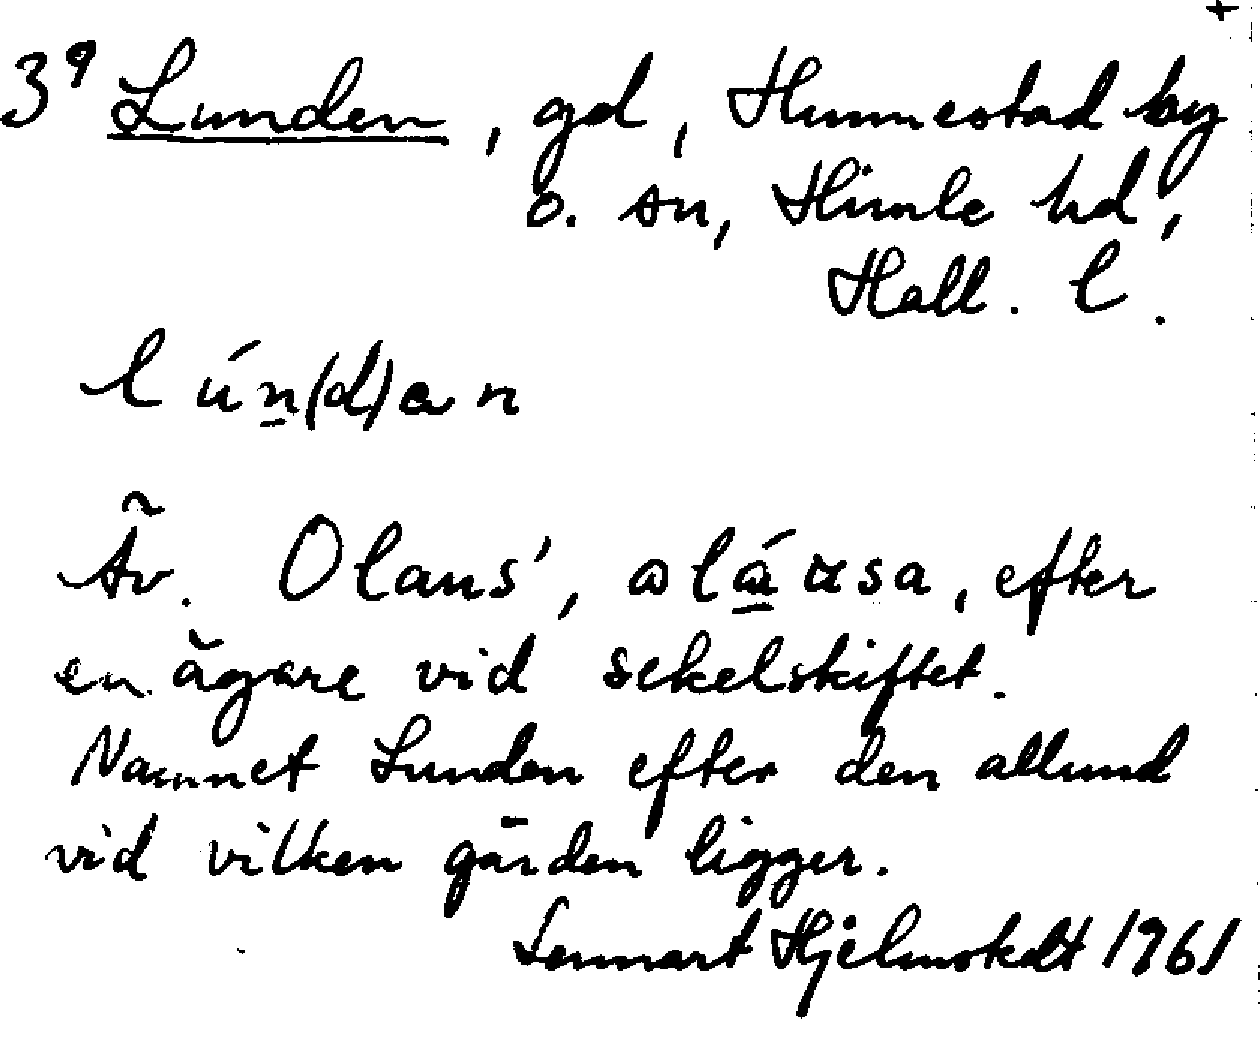 +
3⁹ Lunden, gd, Hunnestad by
o. sn, Himle hd,
Hall. l.
lún(d)an
Äv. Olaus',
efter
en ägare vid sekelskiftet.
Namnet Lunden efter den allund
vid vilken gården ligger.
Lennart Hjelmstedt 1961